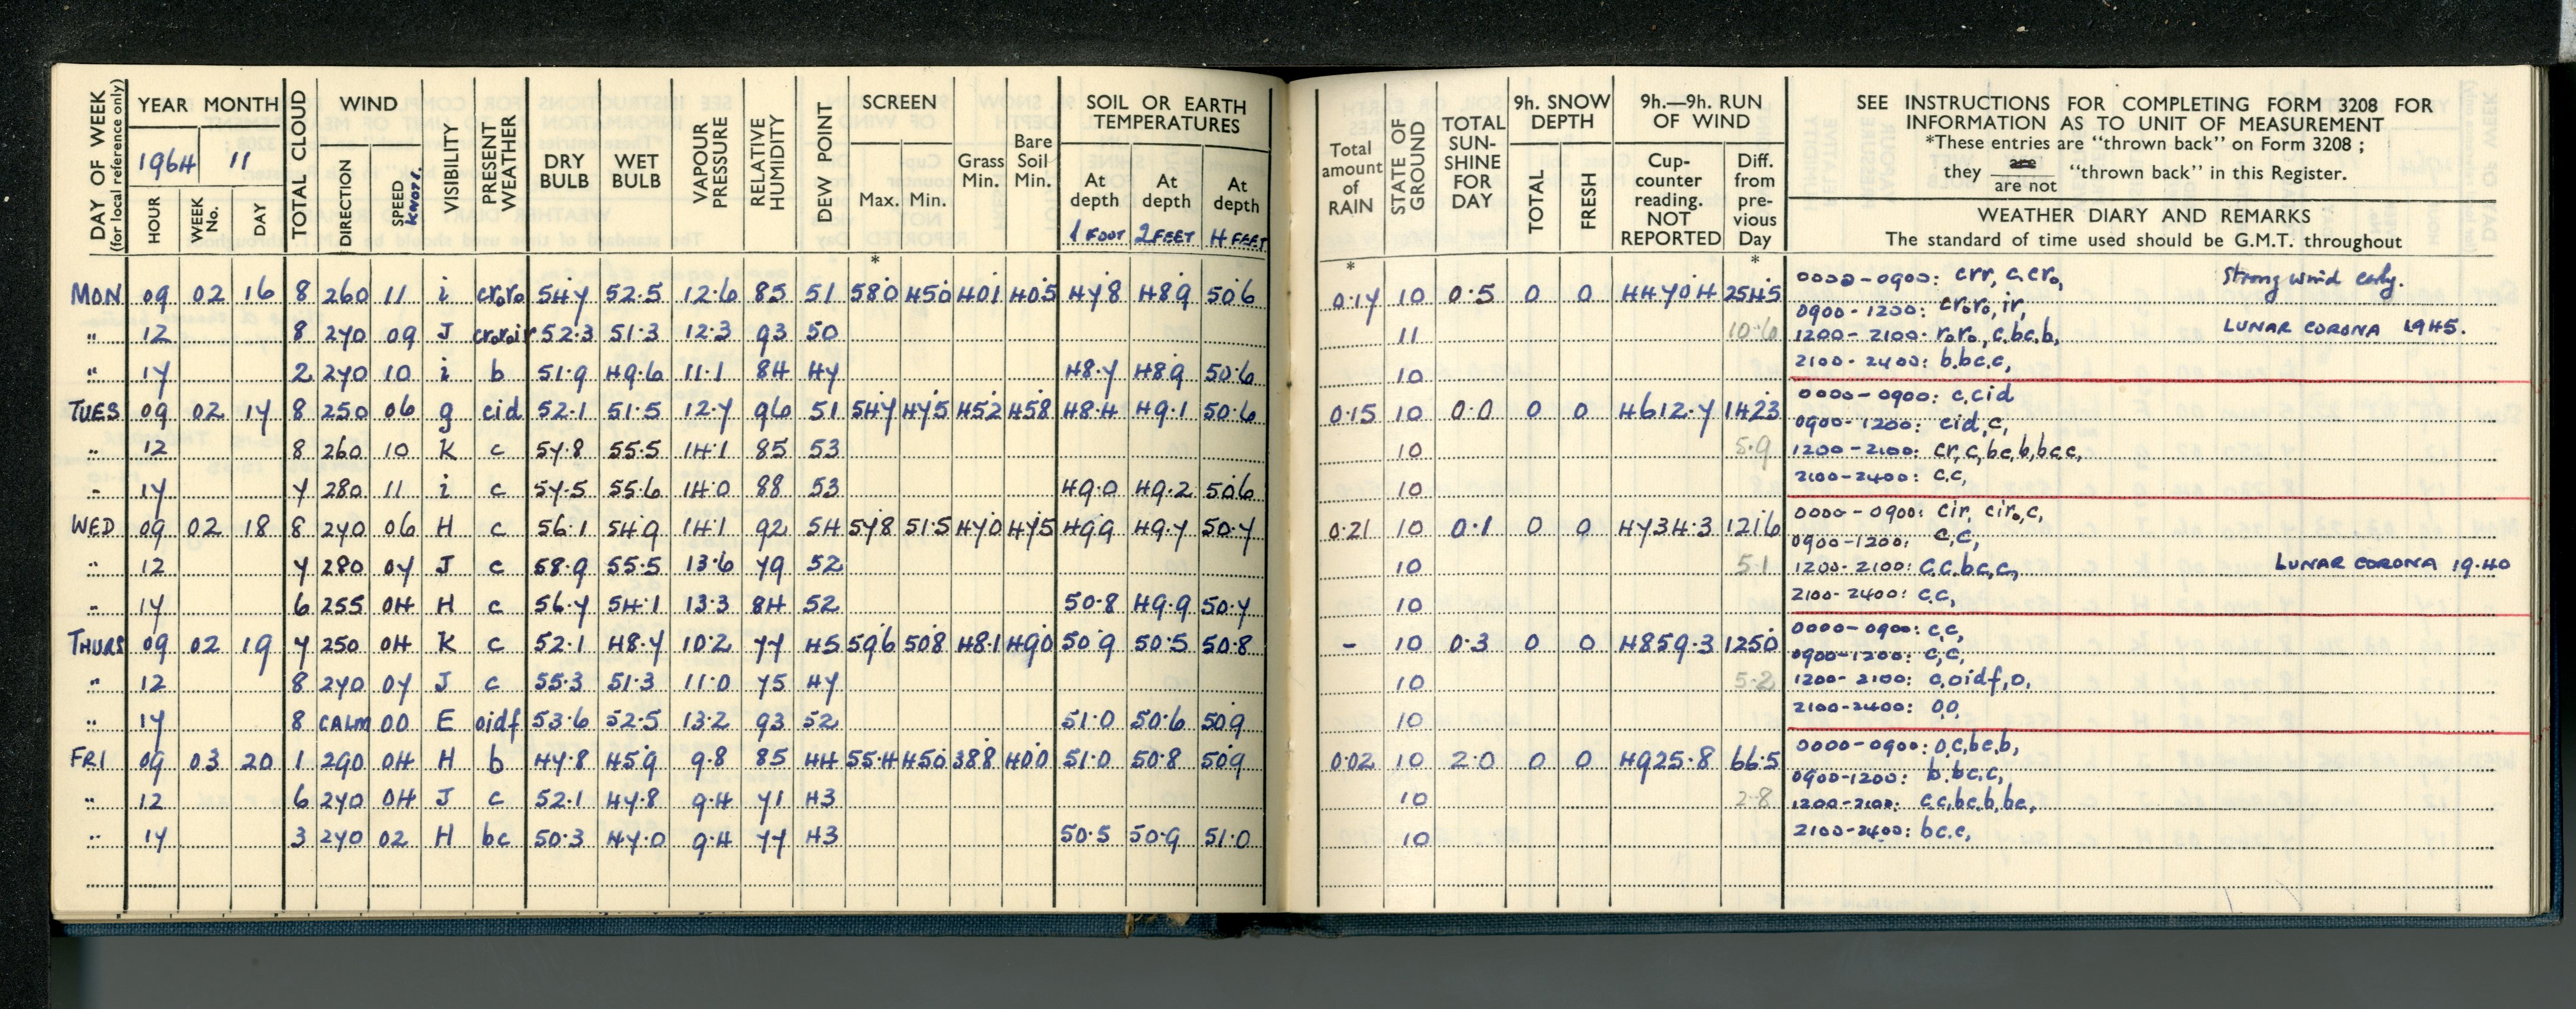 DAY OF WEEK (for local reference only)
YEAR MONTH
1964 11
HOUR WEEK No. DAY
TOTAL CLOUD
WIND
DIRECTION SPEED KNOTS.
VISIBILITY
PRESENT WEATHER
DRY BULB
WET BULB
VAPOUR PRESSURE
RELATIVE HUMIDITY
DEW POINT
SCREEN
Max. Min.
*
Grass Min.
Bare Soil Min.
SOIL OR EARTH TEMPERATURES
At depth 1 FOOT
At depth 2 FEET
At depth 4 FEET
Total amount of RAIN
*
STATE OF GROUND
TOTAL SUN-SHINE FOR DAY
9h. SNOW DEPTH
TOTAL FRESH
9h.—9h. RUN OF WIND
Cup-counter reading. NOT REPORTED
Diff. from pre-vious Day
*
SEE INSTRUCTIONS FOR COMPLETING FORM 3208 FOR
INFORMATION AS TO UNIT OF MEASUREMENT
*These entries are "thrown back" on Form 3208 ;
they are / are not "thrown back" in this Register.
WEATHER DIARY AND REMARKS
The standard of time used should be G.M.T. throughout
MON 09 02 16 8 260 11 i cr₀r₀ 54.7 52.5 12.6 85 51 58.0 45.0 40.1 40.5 47.8 48.9 50.6 0.17 10 0.5 0 0 4470.4 254.5
" 12 8 270 09 J cr₀r₀ir 52.3 51.3 12.3 93 50 11 10.6
" 17 2 270 10 i b 51.9 49.6 11.1 84 47 48.7 48.9 50.6 10
0000-0900: crr, c,cr₀, Strong wind early.
0900-1200: cr₀r₀, ir,
1200-2100: r₀r₀, c,bc,b, LUNAR CORONA 1945.
2100-2400: b.bc.c,
TUES 09 02 17 8 250 06 g cid 52.1 51.5 12.7 96 51 54.7 47.5 45.2 45.8 48.4 49.1 50.6 0.15 10 0.0 0 0 4612.7 142.3
" 12 8 260 10 K c 57.8 55.5 14.1 85 53 10 5.9
" 17 7 280 11 i c 57.5 55.6 14.0 88 53 49.0 49.2 50.6 10
0000-0900: c,cid
0900-1200: cid,c,
1200-2100: cr,c,bc,b,bc,c,
2100-2400: c.c,
WED 09 02 18 8 270 06 H c 56.1 54.9 14.1 92 54 57.8 51.5 47.0 47.5 49.9 49.7 50.7 0.21 10 0.1 0 0 4734.3 121.6
" 12 7 280 07 J c 58.9 55.5 13.6 79 52 10 5.1
" 17 6 255 04 H c 56.7 54.1 13.3 84 52 50.8 49.9 50.7 10
0000-0900: cir, cir₀,c,
0900-1200: c,c,
1200-2100: c.c.bc,c, LUNAR CORONA 19.40
2100-2400: c.c,
THURS 09 02 19 7 250 04 K c 52.1 48.7 10.2 77 45 59.6 50.8 48.1 49.0 50.9 50.5 50.8 - 10 0.3 0 0 4859.3 125.0
" 12 8 270 07 J c 55.3 51.3 11.0 75 47 10 5.2
" 17 8 CALM 00 E oidf 53.6 52.5 13.2 93 52 51.0 50.6 50.9 10
0000-0900: c,c,
0900-1200: c,c,
1200-2100: c,oidf,o,
2100-2400: o,o,
FRI 09 03 20 1 290 04 H b 47.8 45.9 9.8 85 44 55.4 45.0 38.8 40.0 51.0 50.8 50.9 0.02 10 2.0 0 0 4925.8 66.5
" 12 6 270 04 J c 52.1 47.8 9.4 71 43 10 2.8
" 17 3 270 02 H bc 50.3 47.0 9.4 77 43 50.5 50.9 51.0 10
0000-0900: o,c,bc,b,
0900-1200: b.bc.c,
1200-2100: c.c,bc,b,bc,
2100-2400: bc.c,